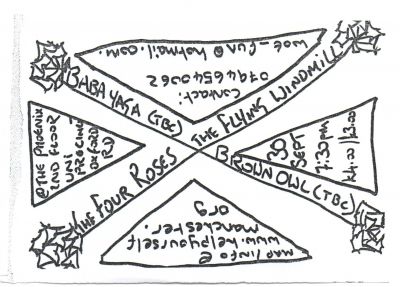 BABA YAGA (TBC)
THE FLYING WINDMILL
THE FOUR ROSES
BROWN OWL (TBC)
@THE PHOENIX
2ND FLOOR
UNI
PRECINCT
OXFORD
RD
30
SEPT
7.30pm
£4.00/£3.00
contact:
07946540062
@hotmail.com.
MAP/INFO @
www.helpyourself
manchester.
org